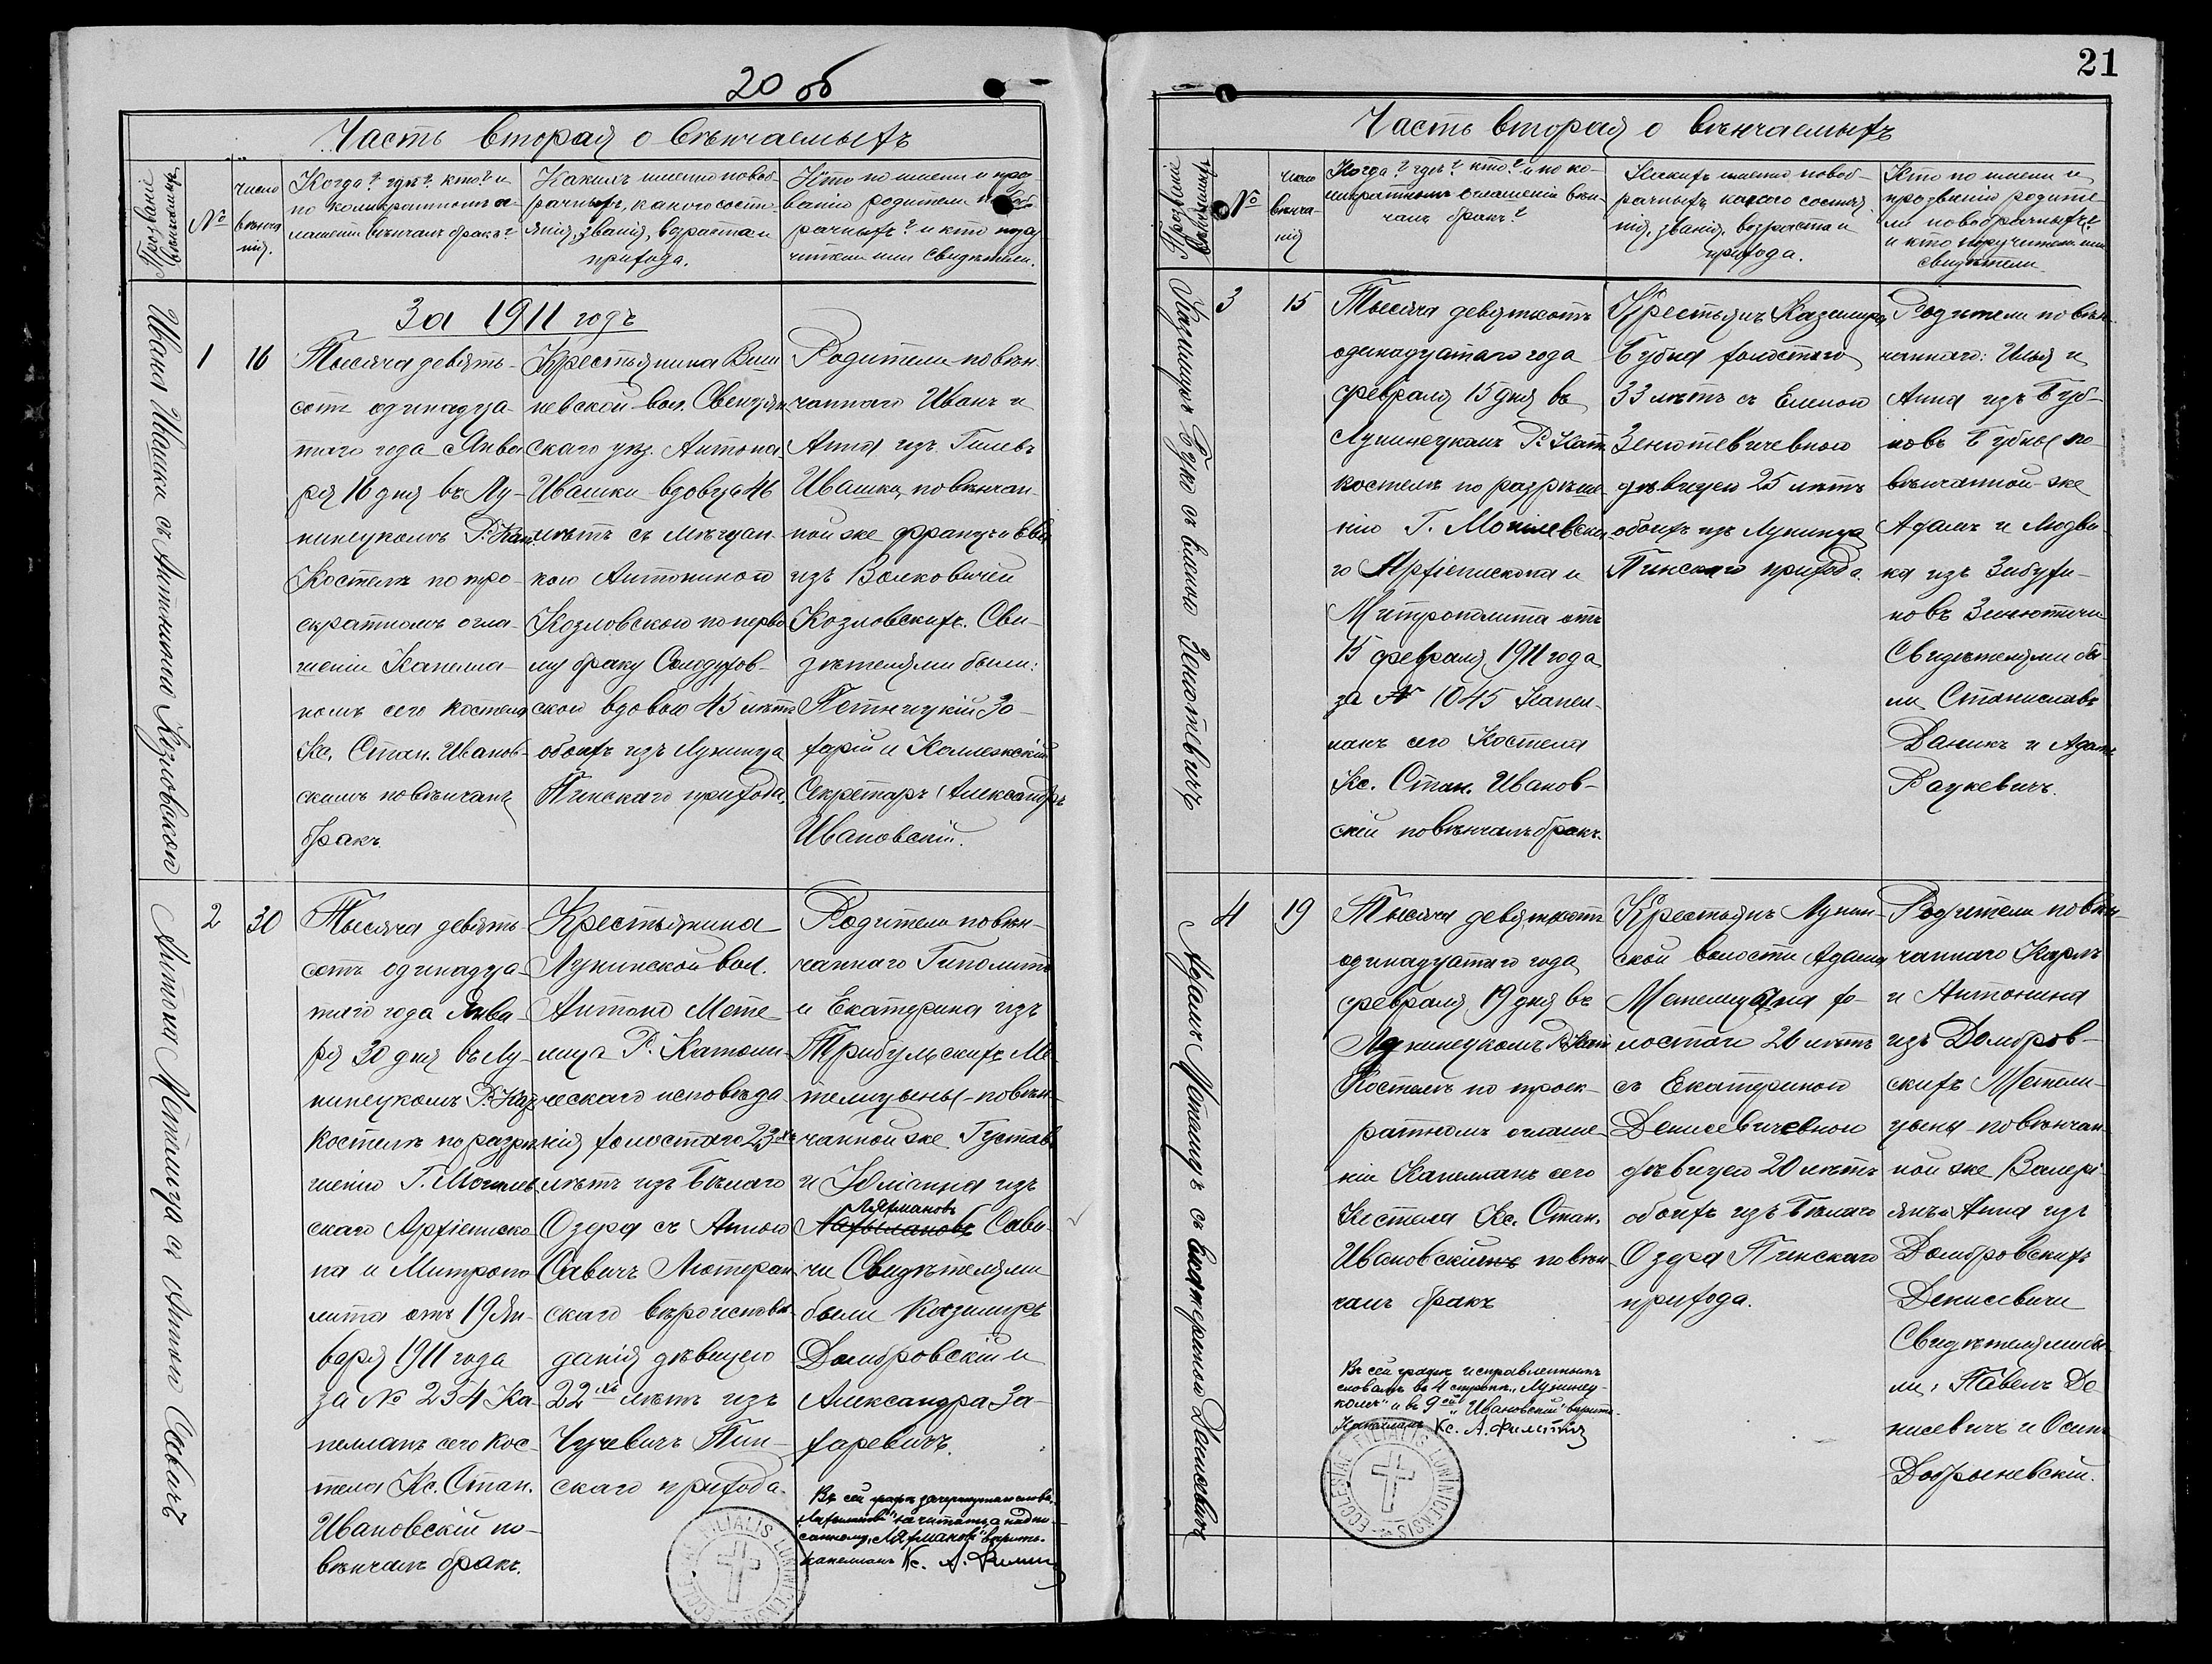 20 об
Часть вторая о вѣнчаемыхъ
№
число
вѣнча
нія.
Когда? гдѣ? кто? и
по коликратномъ ог
лашеніи вѣнчалъ бракъ?
Какихъ именно новоб-
рачныхъ, какого состо-
янія, званія, возраста и
прихода.
Кто по имени и проз-
ванію родители новоб
рачныхъ? и кто пору
чители или Свидѣтели.
За 1911 годъ
Ивана Ивашки съ Антониною Козловскою
1
16
Тысяча девять-
сотъ одинадца-
таго года Янва
ря 16 дня въ Лу-
нинецкомъ Р. Кат.
Костелѣ по тро-
екратномъ огла-
шеніи Капелла-
номъ сего костела
Кс. Стан. Иванов-
скимъ повѣнчанъ
бракъ.
Крестьянина Виш
невской вол. Свенцян
скаго уѣз. Антона
Ивашки вдовца 46
лѣтъ съ мѣщан-
кою Антониною
Козловскою по перво
му браку Солодухов-
скою вдовою 45 лѣтъ
обоихъ изъ Лунинца
Пинскаго прихода.
Родители повѣн-
чаннаго Иванъ и
Анна изъ Гилевъ
Ивашки, повѣнчан-
ной же Францъ и Ева
изъ Волковичей
Козловскихъ. Сви-
дѣтелями были:
Петницкій За-
харій и Коллежскій
Секретарь Александръ
Ивановскій.
Антона Метелица съ Анною Савичъ
2
30
Тысяча девять-
сотъ одинадца-
таго года Янва-
ря 30 дня въ Лу-
нинецкомъ Р. Кат
костелѣ по разрѣ
шенію Г. Могилев
скаго Архіеписко
па и Митропо
лита отъ 19 Ян-
варя 1911 года
за № 234 Ка-
пелланъ сего кос-
тела Кс. Стан.
Ивановскій по-
вѣнчалъ бракъ.
Крестьянина
Лунинской вол.
Антона Мете-
лица Р. Католи-
ческаго исповѣда
нія холостаго 23-хъ
лѣтъ изъ Бѣлаго
Озера съ Анною
Савичъ Лютеран
скаго вѣроисповѣ-
данія дѣвицею
22-хъ лѣтъ изъ
Чучевичъ Пин-
скаго прихода.
Родители повѣн-
чаннаго Гиполитъ
и Екатерина изъ
Трибульскихъ Ме
телицыны-повѣн-
чанной же Густавъ
и Юліанна изъ
Ляхмановъ
Лахмановъ Сави-
чи Свидѣтелями
были Казимиръ
Домбровскій и
Александра За-
харевичъ.
Въ сей графѣ зачеркнутая слова
санному „Ляхмановъ" вѣрить.
Капелланъ Кс. А. Филипп
ECCLESIAE FILIALIS LUNINICENSIS
21
Часть вторая о вѣнчаемыхъ
№
число
вѣнча-
нія
Когда? гдѣ? кто? и по ко-
ликратномъ оглашеніи вѣн-
чалъ бракъ?
Какихъ именно новоб-
рачныхъ, какого состоя
нія, званія, возраста и
прихода.
Кто по имени и
прозванію родите-
ли новобрачныхъ?
и кто поручители или
свидѣтели.
Казимиръ Бубно съ Еленою Зенютевичъ
3
15
Тысяча девятьсотъ
одинадцатаго года
февраля 15 дня въ
Лунинецкомъ Р. Кат.
костелѣ по разрѣше-
нію Г. Могилевска
го Архіепископа и
Митрополита отъ
15 февраля 1911 года
за № 1045 Капел-
ланъ сего Костела
Кс. Стан. Иванов-
скій повѣнчалъ бракъ.
Крестьянъ Казимира
Бубна холостаго
33 лѣтъ съ Еленою
Зенютевичевною
дѣвицею 25 лѣтъ
обоихъ изъ Лунинца
Пинскаго прихода.
Родители повѣн-
чаннаго: Илья и
Анна изъ Буб-
новъ Бубны по-
вѣнчанной-же
Адамъ и Людви-
ка изъ Забузи-
новъ Зенютичи
Свидѣтелями бы-
ли Станиславъ
Данинъ и Адамъ
Рацкевичъ.
Адамъ Метелица съ Екатериною Денисевичъ
4
19
Тысяча девятьсотъ
одинадцатаго года
февраля 19 дня въ
Лунинецкомъ Р. Кат
Костелѣ по троек-
ратномъ оглаше-
ніи Капелланъ сего
Костела Кс. Стан.
Ивановскій повѣн
чалъ бракъ
Крестьянъ Лунин-
ской волости Адама
Метелицына хо-
лостаго 26 лѣтъ
съ Екатериною
Денисевичевною
дѣвицею 20 лѣтъ
обоихъ изъ Бѣлаго
Озера Пинскаго
прихода.
Родители повѣн-
чаннаго Карлъ
и Антонина
изъ Домбров-
скихъ Метели-
цыны повѣнчан-
ной же Валері-
янъ и Анна изъ
Домбровскихъ
Денисевичи
Свидѣтелями бы-
ли, Павелъ Де-
нисевичъ и Осипъ
Добрыневскій.
Въ сей графѣ исправленнымъ
словамъ въ 4 строкѣ „Лунинец-
комъ" и въ 9-ой „Ивановскій" вѣрить.
Капелланъ Кс. А. Филиппъ
ECCLESIAE FILIALIS LUNINICENSIS